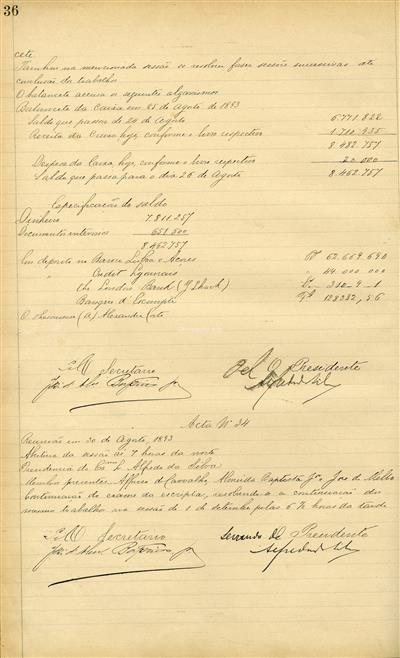 36
cete
Tambem na mencionada sessão se resolveu fazer sessões successivas até
conclusão do trabalho
O balancete accusa os seguintes algarismos
Balancete da Caixa em 25 de Agosto de 1893
Saldo que passou de 24 de Agosto 6.771.822
Receita da Caixa hoje, conforme o livro respectivo 1.710.935
8.482.757
Despeza da Caixa, hoje, conforme o livro respectivo 20.000
Saldo que passa para o dia 26 de Agosto 8.462.757
Especificação do saldo
Dinheiro 7.811.257
Documentos internos 651.500
8.462.757
Em deposito no Banco Lisboa e Açores 62.669.690
" Credit Lyonnais 44.000.000
310-9-1
Banque d'Escompte 128382,56
O thesoureiro (a) Alexandre
O Secretario
O Presidente
Acta Nº 34
Reunião em 30 de Agosto, 1893
Abertura da sessão ás 7 horas da noite
Presidencia do Exmo Sr Alfredo da Silva
Membros presentes Affonso de Carvalho, Almeida Baptista Jor, José de Mello
Continuação do exame da escripta, resolvendo-se a continuação do
mesmo trabalho na sessão de 1 de setembro pelas 6 ½ horas da tarde
O Secretario
Servindo de Presidente
Alfredo da Silva